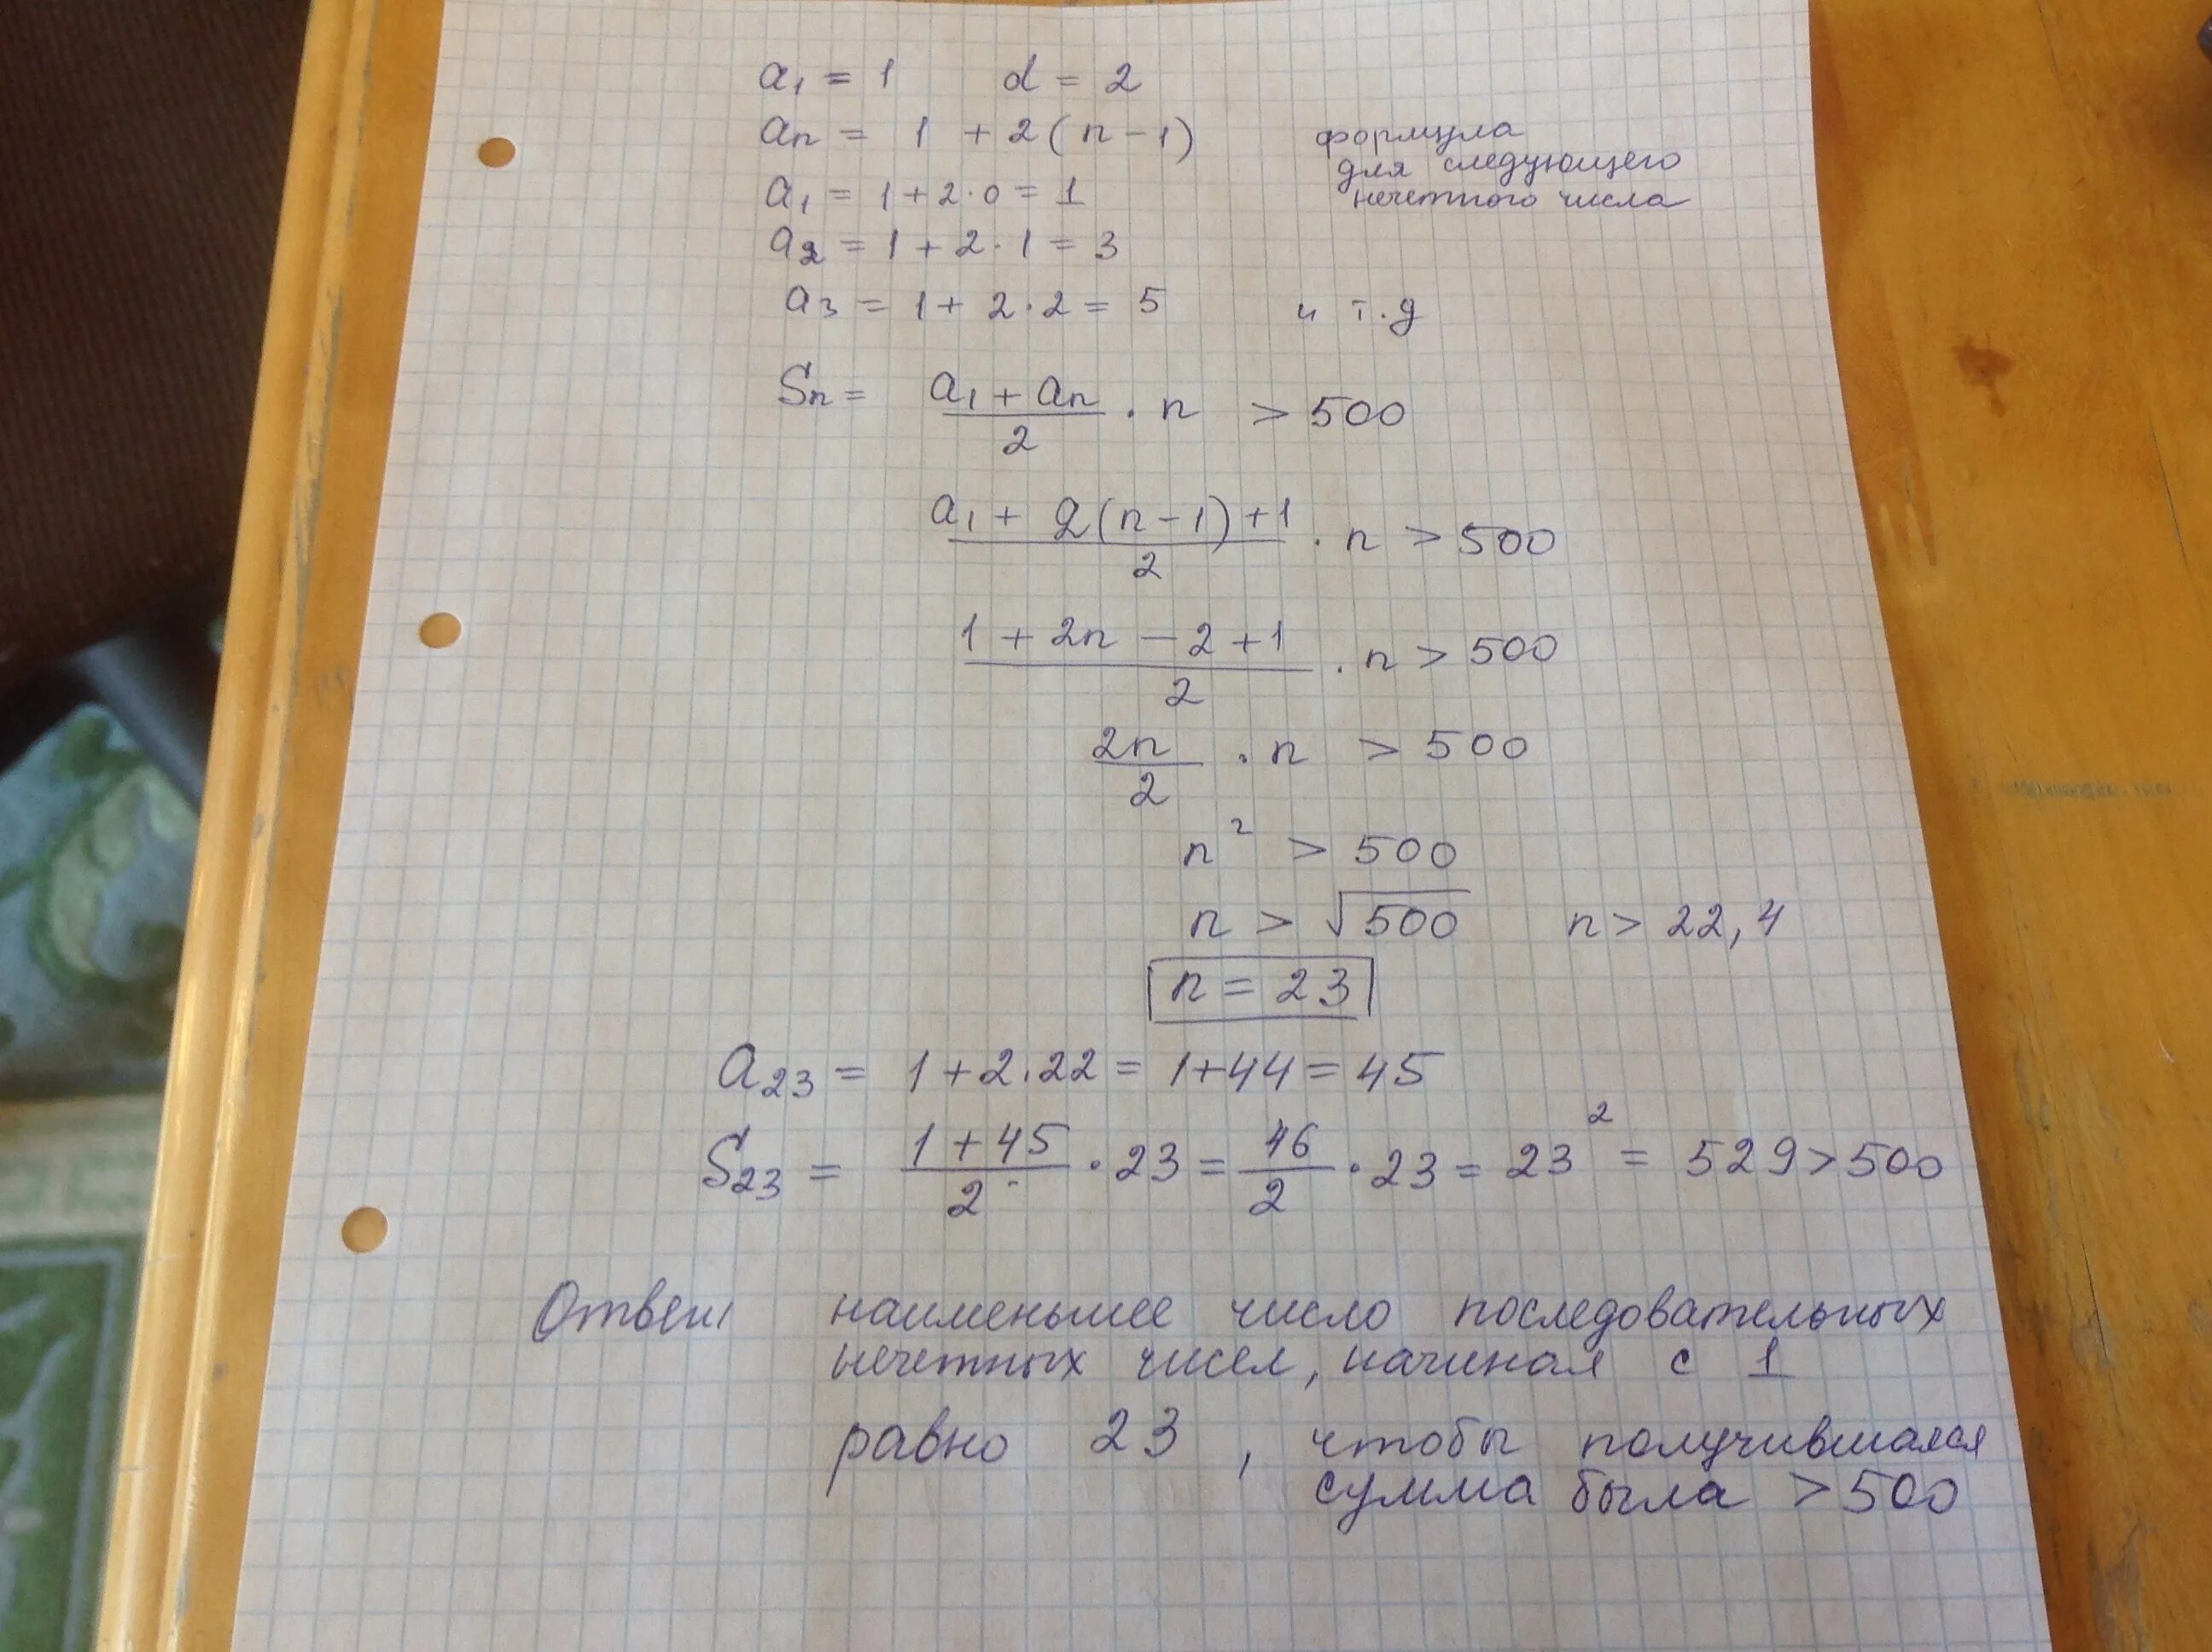 a₁ = 1 d = 2
aₙ = 1 + 2(n-1) формула
для следующего
a₁ = 1+2·0 = 1 нечетного числа
a₂ = 1+2·1 = 3
a₃ = 1+2·2 = 5 и т.д
Sₙ = (a₁ + aₙ)/2 · n > 500
(a₁ + 2(n-1)+1)/2 · n > 500
(1 + 2n - 2 + 1)/2 · n > 500
2n/2 · n > 500
n² > 500
n > √500 n > 22,4
n = 23
a₂₃ = 1+2·22 = 1+44 = 45
S₂₃ = (1+45)/2 · 23 = 46/2 · 23 = 23² = 529 > 500
Ответ наименьшее число последовательных
нечетных чисел, начиная с 1
равно 23 , чтобы получившаяся
сумма была > 500